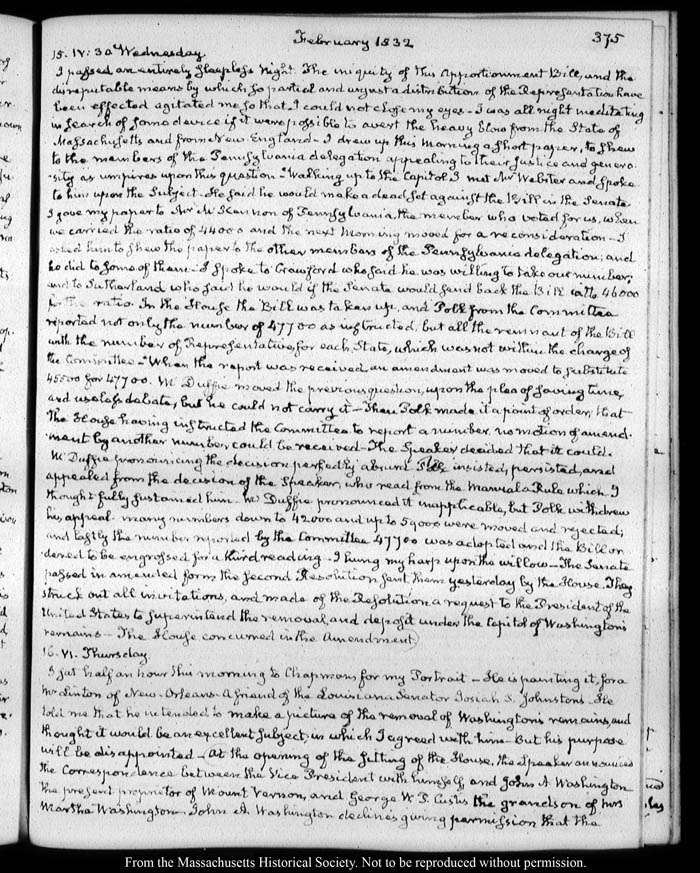 February 1832
375
15. IV:30 Wednesday.
I passed an entirely sleepless Night. The iniquity of this Apportionment Bill, and the
disreputable means by which so partial and unjust a distribution of the Representation have
been effected agitated me so that I could not close my eyes. I was all night meditating
in search of some device if it were possible to avert the heavy blow from the State of
Massachusetts and from New England. I drew up this Morning a short paper, to shew
to the members of the Pennsylvania delegation appealing to their justice and genero-
sity as umpires upon this question. Walking up to the Capitol I met Mr Webster and spoke
to him upon the Subject. He said he would make a dead set against the Bill in the Senate
I gave my paper to Mr McKennon of Pennsylvania the member who voted for us, when
we carried the ratio of 44000 and the next morning moved for a reconsideration - I
asked him to shew the paper to the other members of the Pennsylvania delegation; and
he did to some of them - I spoke to Crawford who said he was willing to take our number,
and to Sutherland who said he would if the Senate would send back the Bill with 46000
for the ratio. In the House the Bill was taken up, and Polk from the Committee
reported not only the number of 47700 as instructed, but all the remnant of the Bill
with the number of Representatives for each State, which was not within the charge of
the Committee - When the report was received an amendment was moved to substitute
45500 for 47700. McDuffie moved the previous question, upon the plea of saving time,
and useless debate, but he could not carry it - Then Polk made it a point of order, that
the House having instructed the Committee to report a number no motion of amend-
ment by another number, could be received - The Speaker decided that it could.
McDuffie pronouncing the decision perfectly absurd. Polk insisted, persisted, and
appealed from the decision of the Speaker, who read from the Manual a Rule which I
thought fully sustained him. McDuffie pronounced it inapplicable, but Polk withdrew
his appeal. many numbers down to 42000 and up to 59000 were moved and rejected;
and lastly the number reported by the Committee 47700 was adopted and the Bill or-
dered to be engrossed for a third reading - I hung my harp upon the willow - The Senate
passed in amended form the second Resolution sent them yesterday by the House. They
struck out all invitations, and made of the Resolution a request to the President of the
United States to superintend the removal, and deposit under the Capitol of Washington's
remains - The House concurred in the Amendment
16. VI. Thursday.
I sat half an hour this morning to Chapman for my Portrait - He is painting it, for a
Mr Linton of New-Orleans a friend of the Louisiana Senator Josiah S. Johnston's. He
told me that he intended to make a picture of the removal of Washington's remains, and
thought it would be an excellent subject; in which I agreed with him - But his purpose
will be disappointed - At the opening of the sitting of the House, the Speaker announced
the Correspondence between the Vice President with himself, and John A Washington
the present proprietor of Mount Vernon, and George W. P. Custis the grandson of Mrs
Martha Washington - John A. Washington declines giving permission that the
From the Massachusetts Historical Society. Not to be reproduced without permission.